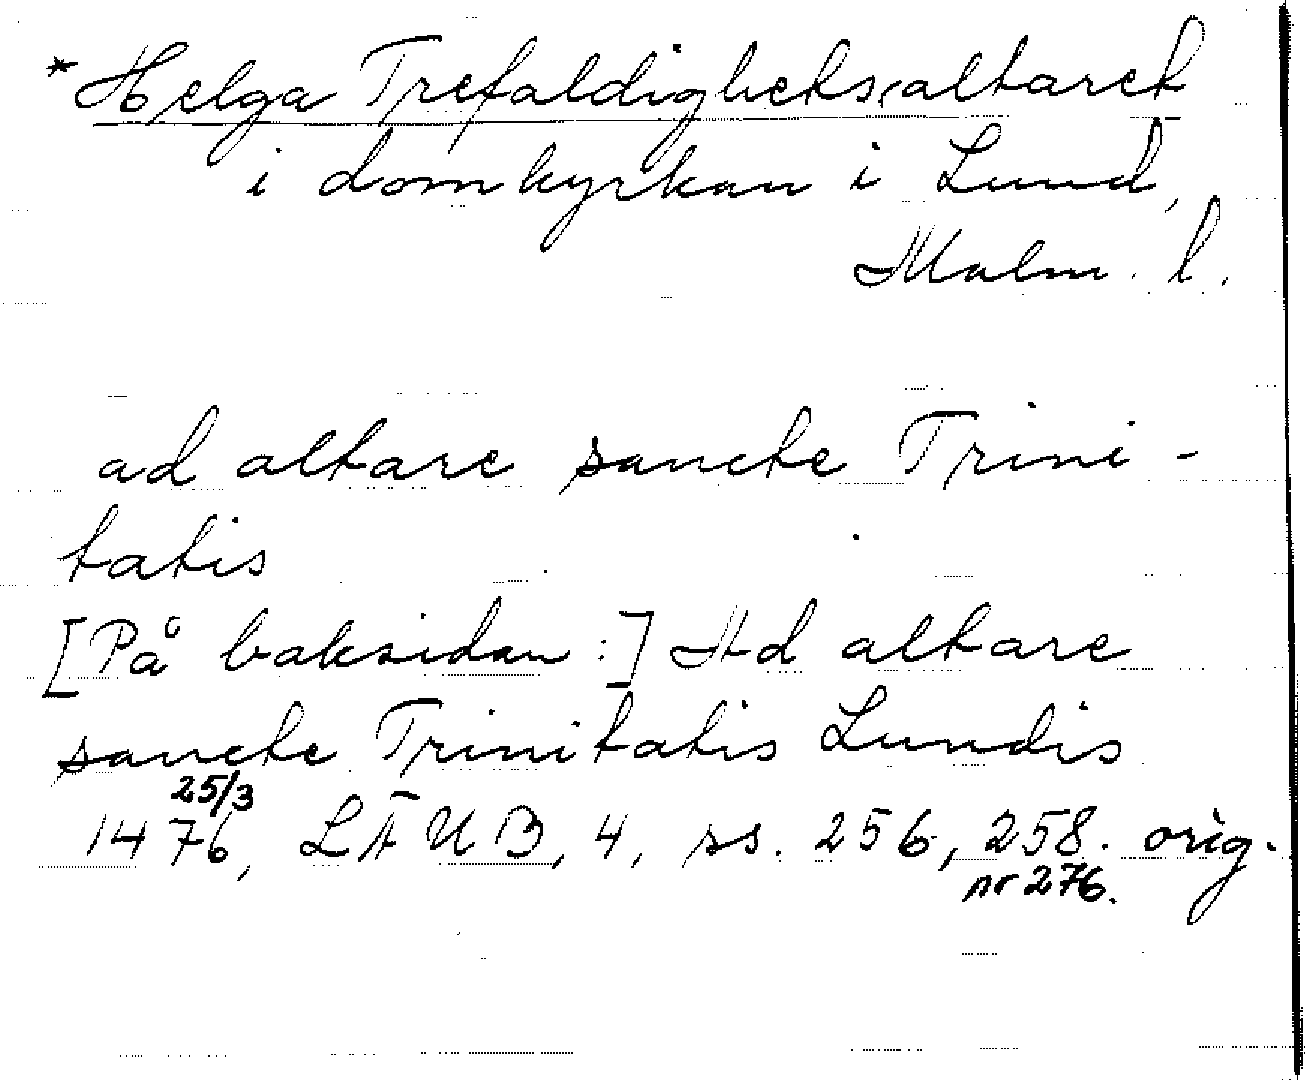 *Helga Trefaldighetsaltaret
i domkyrkan i Lund,
Malm. l.
ad altare sancte Trini-
tatis
[På baksidan:] Ad altare
sancte Trinitatis Lundis
25/3
1476, LÄUB, 4, ss. 256, 258. orig.
nr 276.